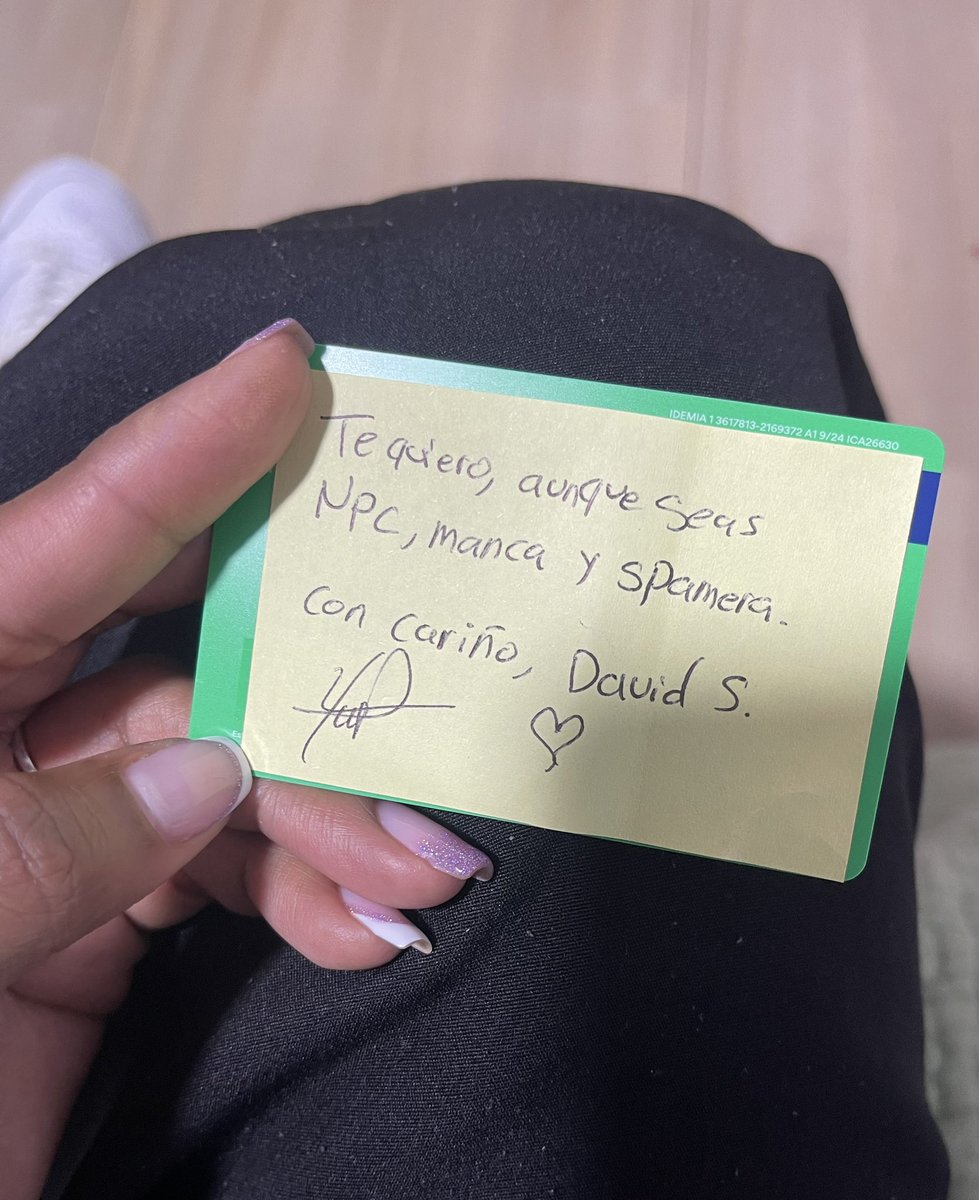 IDEMIA 1 3617813-2169372 A1 9/24 ICA26630
Te quiero, aunque seas
NPC, manca y spamera.
con cariño, David S.